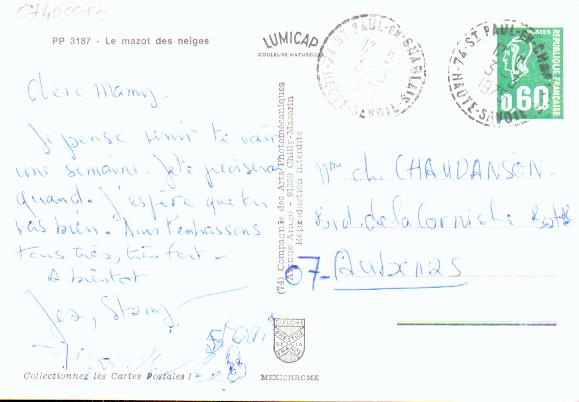 07400013
PP 3187 - Le mazot des neiges
LUMICAP
COULEURS NATURELLES
74-ST PAUL-EN-CHABLAIS
HAUTE-SAVOIE
POSTES
REPUBLIQUE FRANÇAISE
0.60
Chère Mamy.
Je pense venir te voir
une semaine. Je te préciserai
quand. J'espère que tu
vas bien. Nous t'embrassons
tous très, très fort.
A bientôt
(74) Compagnie des Arts/Photomécaniques
91380 Chilly-Mazarin
Reproduction interdite
Mme ch. CHAUDANSON
Brd. de la Corniche
07- Aubenas
DIPLOME
PRESTIGE
DE LA
FRANCE
Collectionnez les Cartes Postales !
MEXICHROME